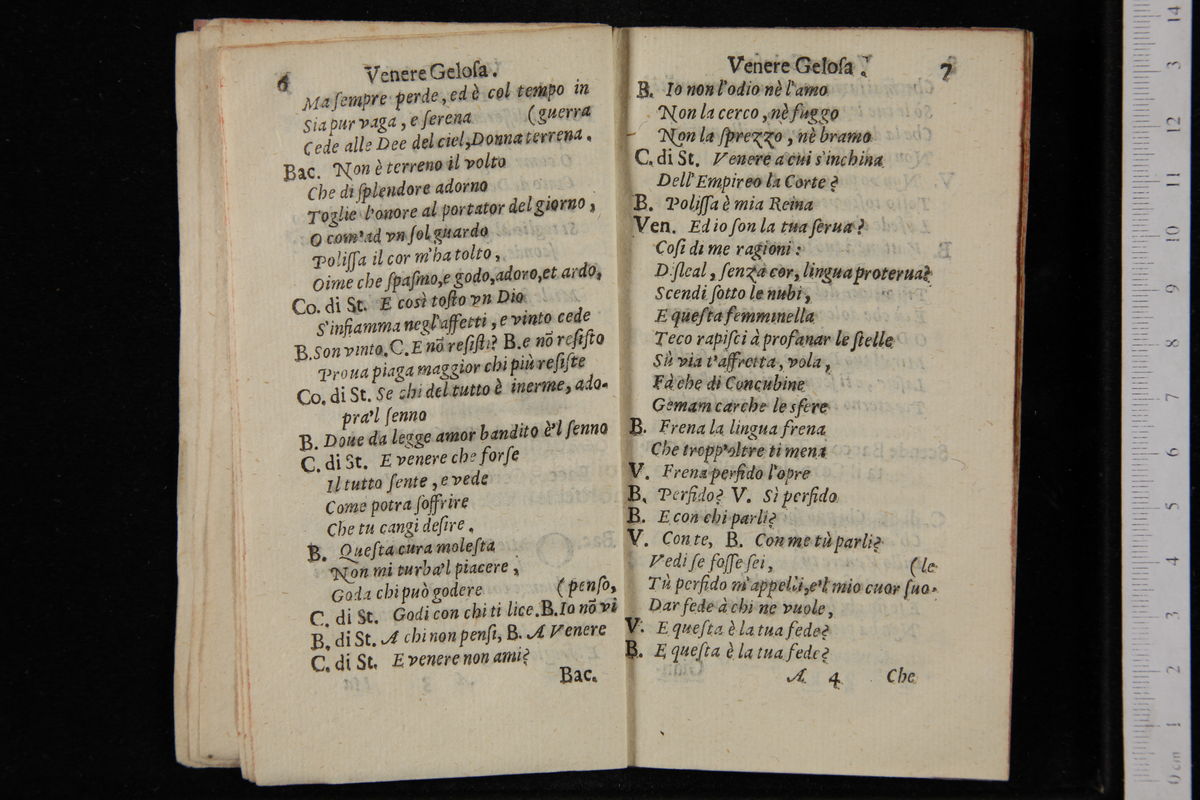 6 Venere Geloſa.
Ma ſempre perde, ed è col tempo in
Sia pur vaga, e ſerena (guerra
Cede alle Dee del ciel, Donna terrena.
Bac. Non è terreno il volto
Che di ſplendore adorno
Toglie l'onore al portator del giorno,
O com' ad vn ſol guardo
Poliſſa il cor m'ha tolto,
Oime che ſpaſmo, e godo, adoro, et ardo,
Co. di St. E così toſto vn Dio
S'infiamma negl'affetti, e vinto cede
B. Son vinto. C. E nõ reſiſti? B. e nõ reſiſto
Proua piaga maggior chi più reſiſte
Co. di St. Se chi del tutto è inerme, ado-
pra'l ſenno
B. Doue da legge amor bandito è'l ſenno
C. di St. E venere che forſe
Il tutto ſente, e vede
Come potra ſoffrire
Che tu cangi deſire.
B. Queſta cura moleſta
Non mi turba'l piacere,
Goda chi può godere (penſo,
C. di St. Godi con chi ti lice. B. Io nõ vi
B. di St. A chi non penſi, B. A Venere
C. di St. E venere non ami?
Bac.
Venere Geloſa. 7
B. Io non l'odio nè l'amo
Non la cerco, nè fuggo
Non la ſprezzo, nè bramo
C. di St. Venere a cui s'inchina
Dell'Empireo la Corte?
B. Poliſſa è mia Reina
Ven. Ed io ſon la tua ſerua?
Coſi di me ragioni:
Dſleal, ſenza cor, lingua proterua?
Scendi ſotto le nubi,
E queſta femminella
Teco rapiſci à profanar le ſtelle
Sù via t'affretta, vola,
Fà che di Concubine
Gemam carche le sfere
B. Frena la lingua frena
Che tropp'oltre ti mena
V. Frena perfido l'opre
B. Perfido? V. Sì perfido
B. E con chi parli?
V. Con te, B. Con me tù parli?
Vedi ſe foſſe ſei, (le
Tù perfido m'appelli, e'l mio cuor ſuo-
Dar fede à chi ne vuole,
V. E queſta è la tua fede?
B. E queſta è la tua fede?
A 4 Che
14
3
12
11
10
9
8
7
6
5
4
3
2
1
0 cm